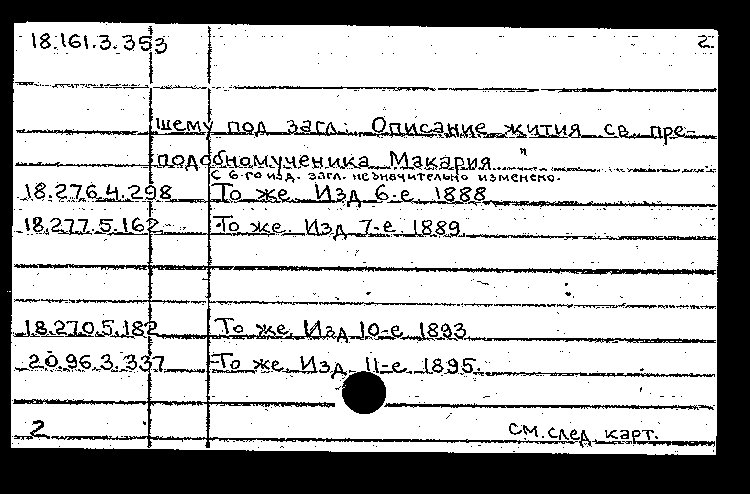 18.161.3.353 2
шему под загл.: Описание жития св. пре-
подобномученика Макария..."
с 6-го изд. загл. незначительно изменено.
18.276.4.298 То же. Изд 6-е. 1888
18.277.5.162 То же. Изд 7-е. 1889
18.270.5.182 То же. Изд 10-е 1893
20.96.3.337 То же. Изд. 11-е 1895.
2 см. след. карт.